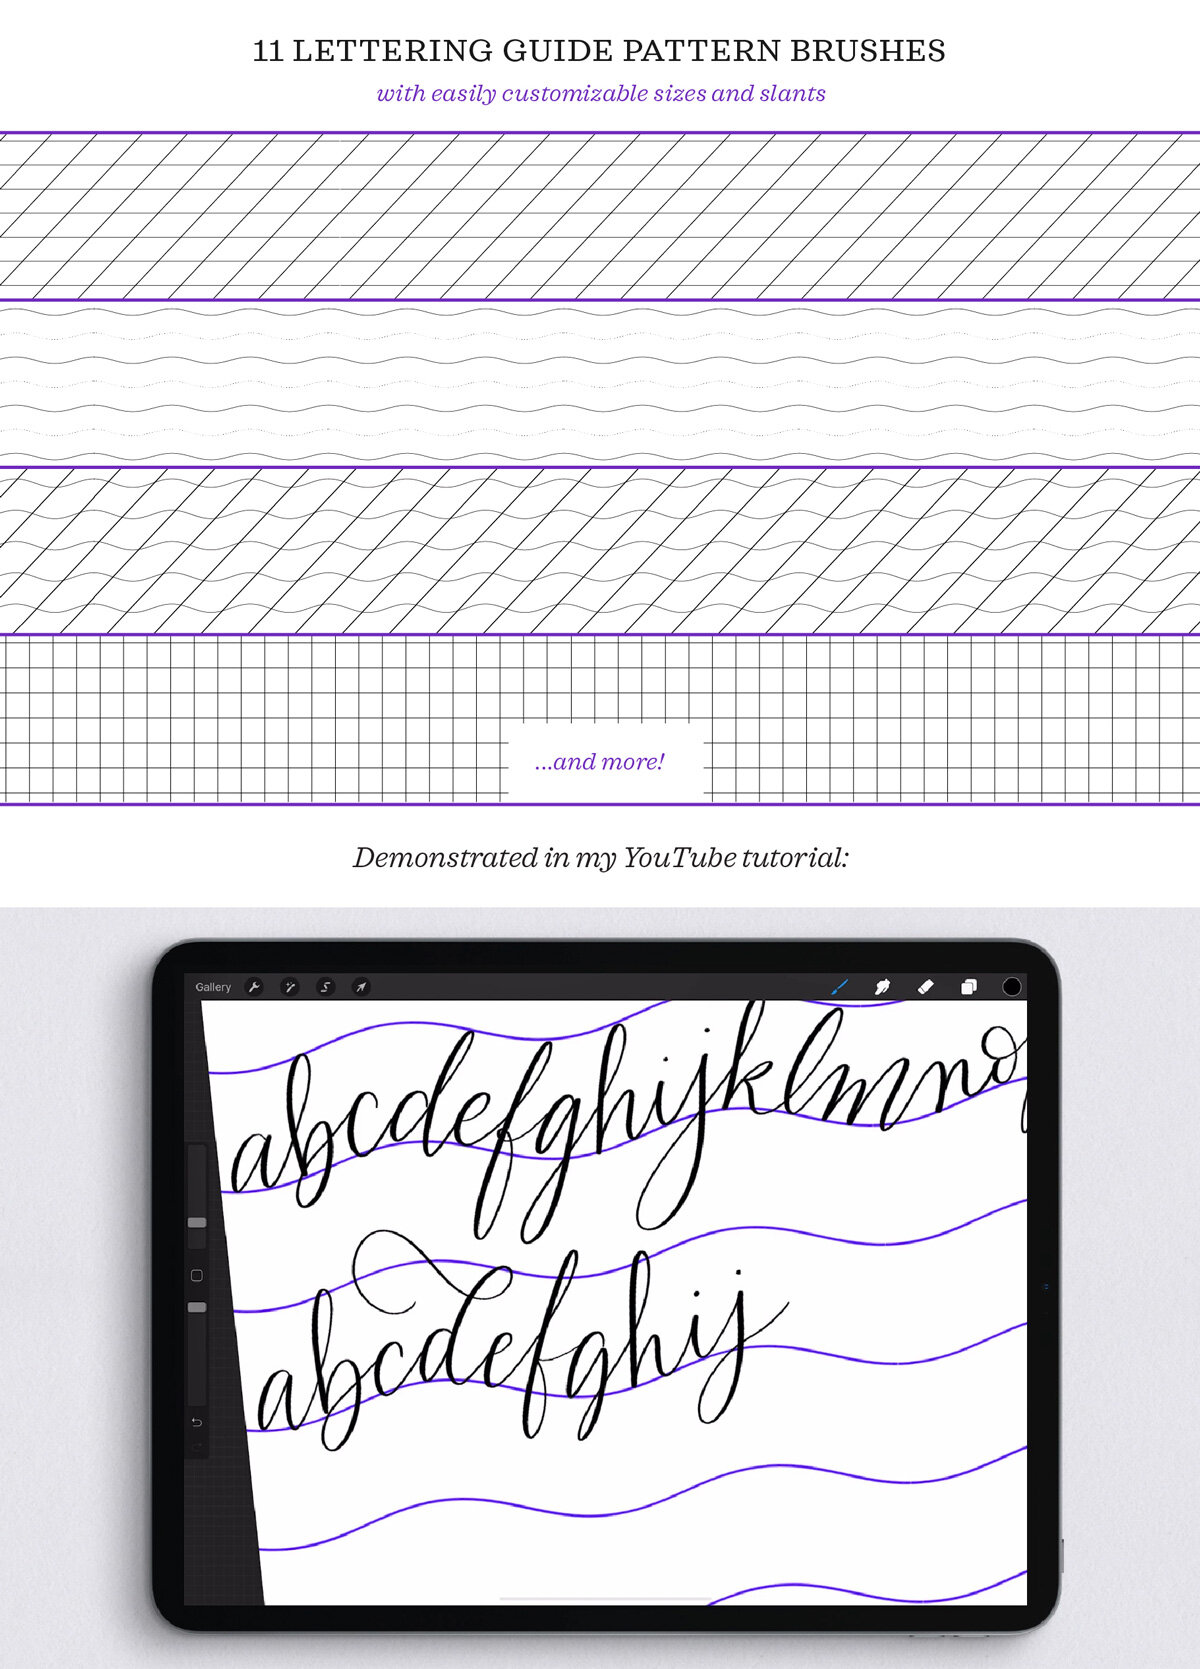 11 LETTERING GUIDE PATTERN BRUSHES
with easily customizable sizes and slants
...and more!
Demonstrated in my YouTube tutorial:
Gallery
abcdefghijklmno
abcdefghij